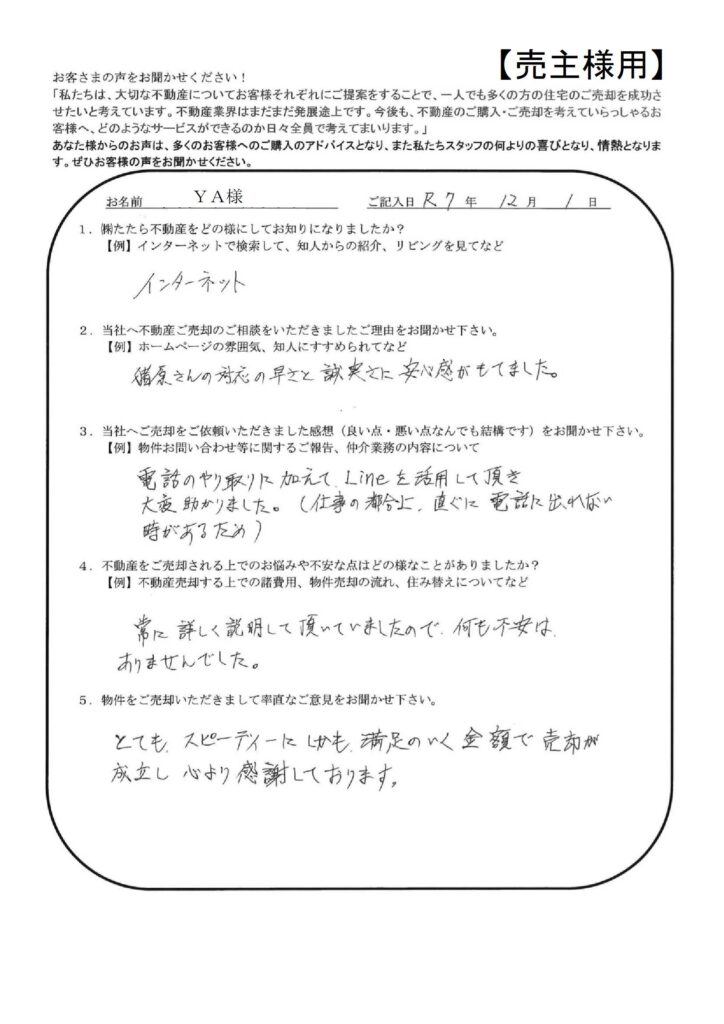 【売主様用】
お客さまの声をお聞かせください！
「私たちは、大切な不動産についてお客様それぞれにご提案をすることで、一人でも多くの方の住宅のご売却を成功さ
せたいと考えています。不動産業界はまだまだ発展途上です。今後も、不動産のご購入・ご売却を考えていらっしゃるお
客様へ、どのようなサービスができるのか日々全員で考えてまいります。」
あなた様からのお声は、多くのお客様へのご購入のアドバイスとなり、また私たちスタッフの何よりの喜びとなり、情熱となりま
す。ぜひお客様の声をお聞かせください。
お名前 ＹＡ様 ご記入日 R7 年 12 月 1 日
１．㈱たたら不動産をどの様にしてお知りになりましたか？
【例】インターネットで検索して、知人からの紹介、リビングを見てなど
インターネット
２．当社へ不動産ご売却のご相談をいただきましたご理由をお聞かせ下さい。
【例】ホームページの雰囲気、知人にすすめられてなど
さんの対応の早さと誠実さに安心感がもてました。
３．当社へご売却をご依頼いただきました感想（良い点・悪い点なんでも結構です）をお聞かせ下さい。
【例】物件お問い合わせ等に関するご報告、仲介業務の内容について
電話のやり取りに加えて、Lineを活用して頂き
大変助かりました。（仕事の都合上、直ぐに電話に出れない
時があるため）
４．不動産をご売却される上でのお悩みや不安な点はどの様なことがありましたか？
【例】不動産売却する上での諸費用、物件売却の流れ、住み替えについてなど
常に詳しく説明して頂いていましたので、何も不安は、
ありませんでした。
５．物件をご売却いただきまして率直なご意見をお聞かせ下さい。
とても、スピーディーにしかも、満足のいく金額で売却が
成立し心より感謝しております。